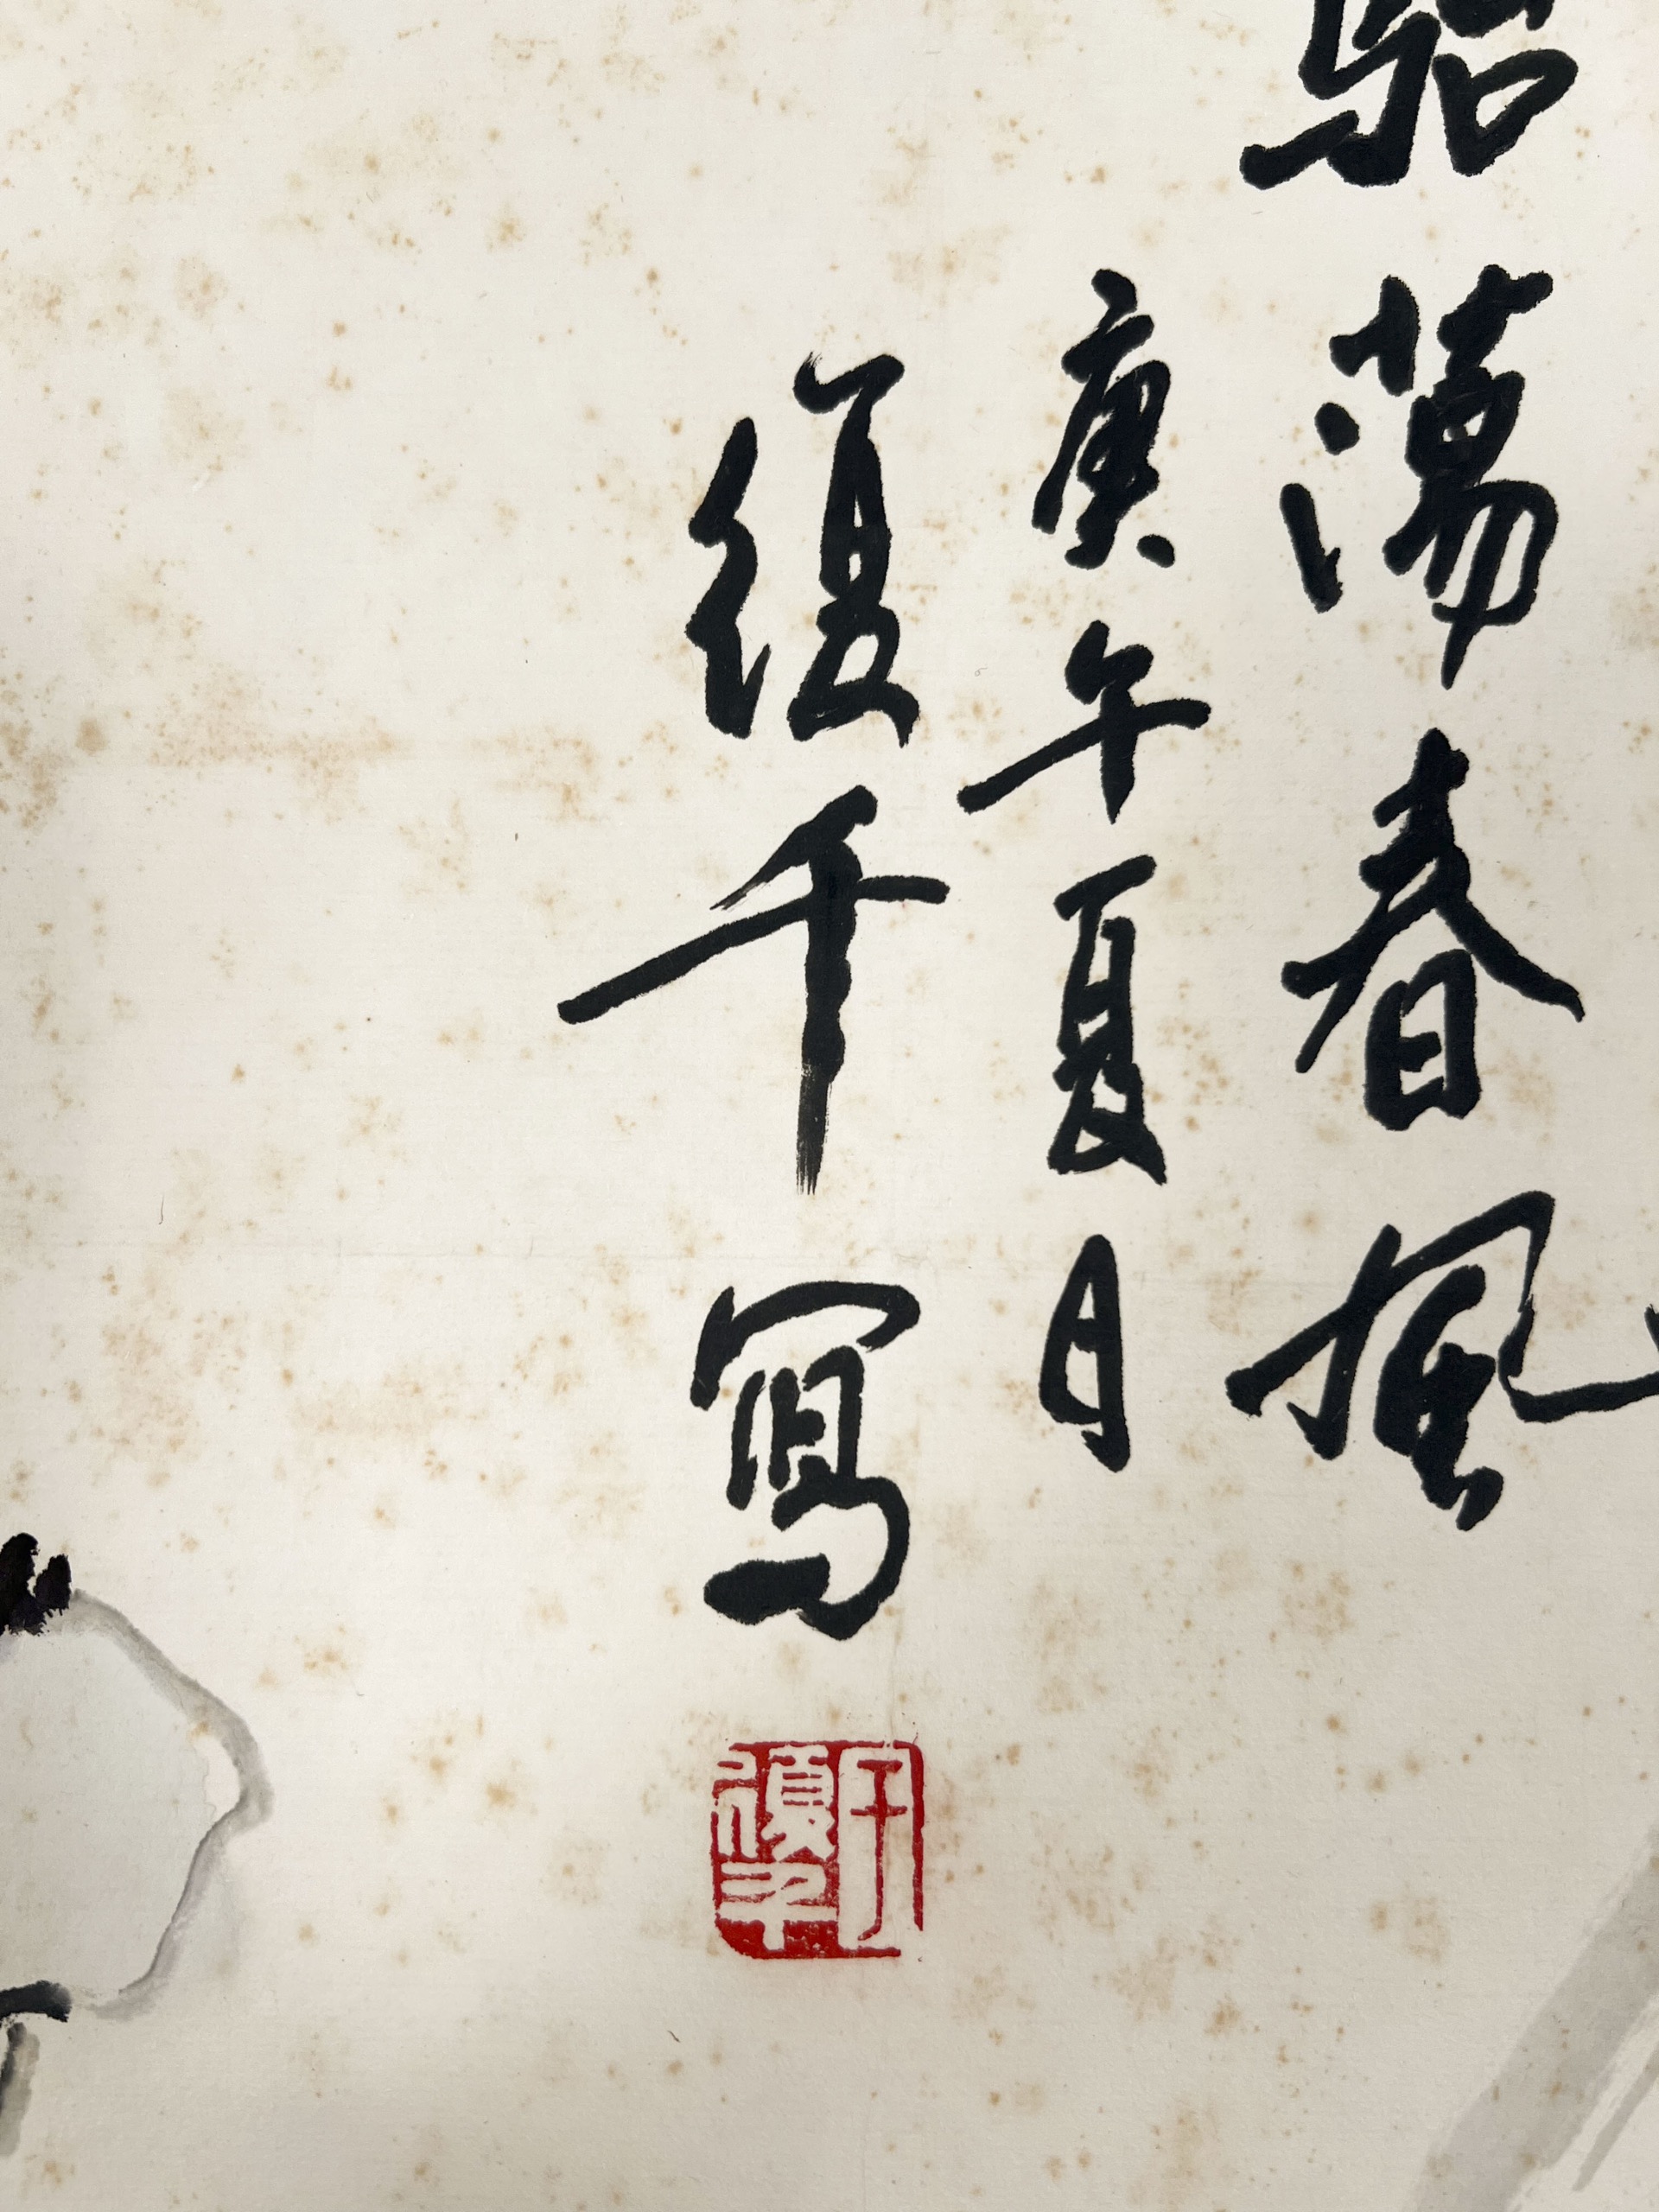 駘蕩春風
庚午夏日
復千寫
于復千